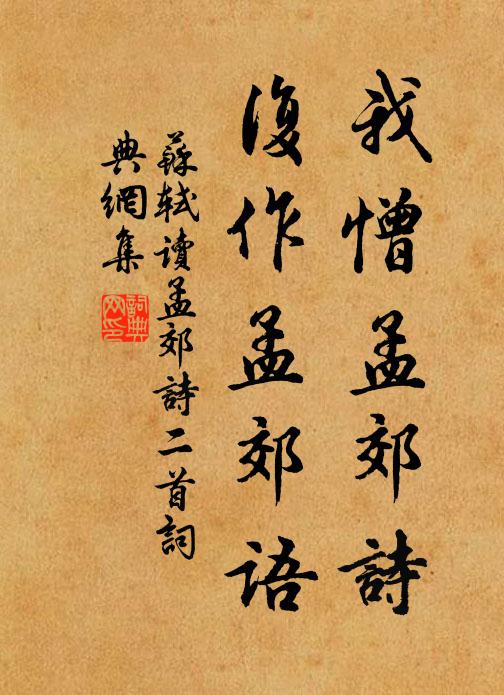 我憎孟郊詩
復作孟郊语
蘇軾讀孟郊詩二首詞
典網集
詞典
网印